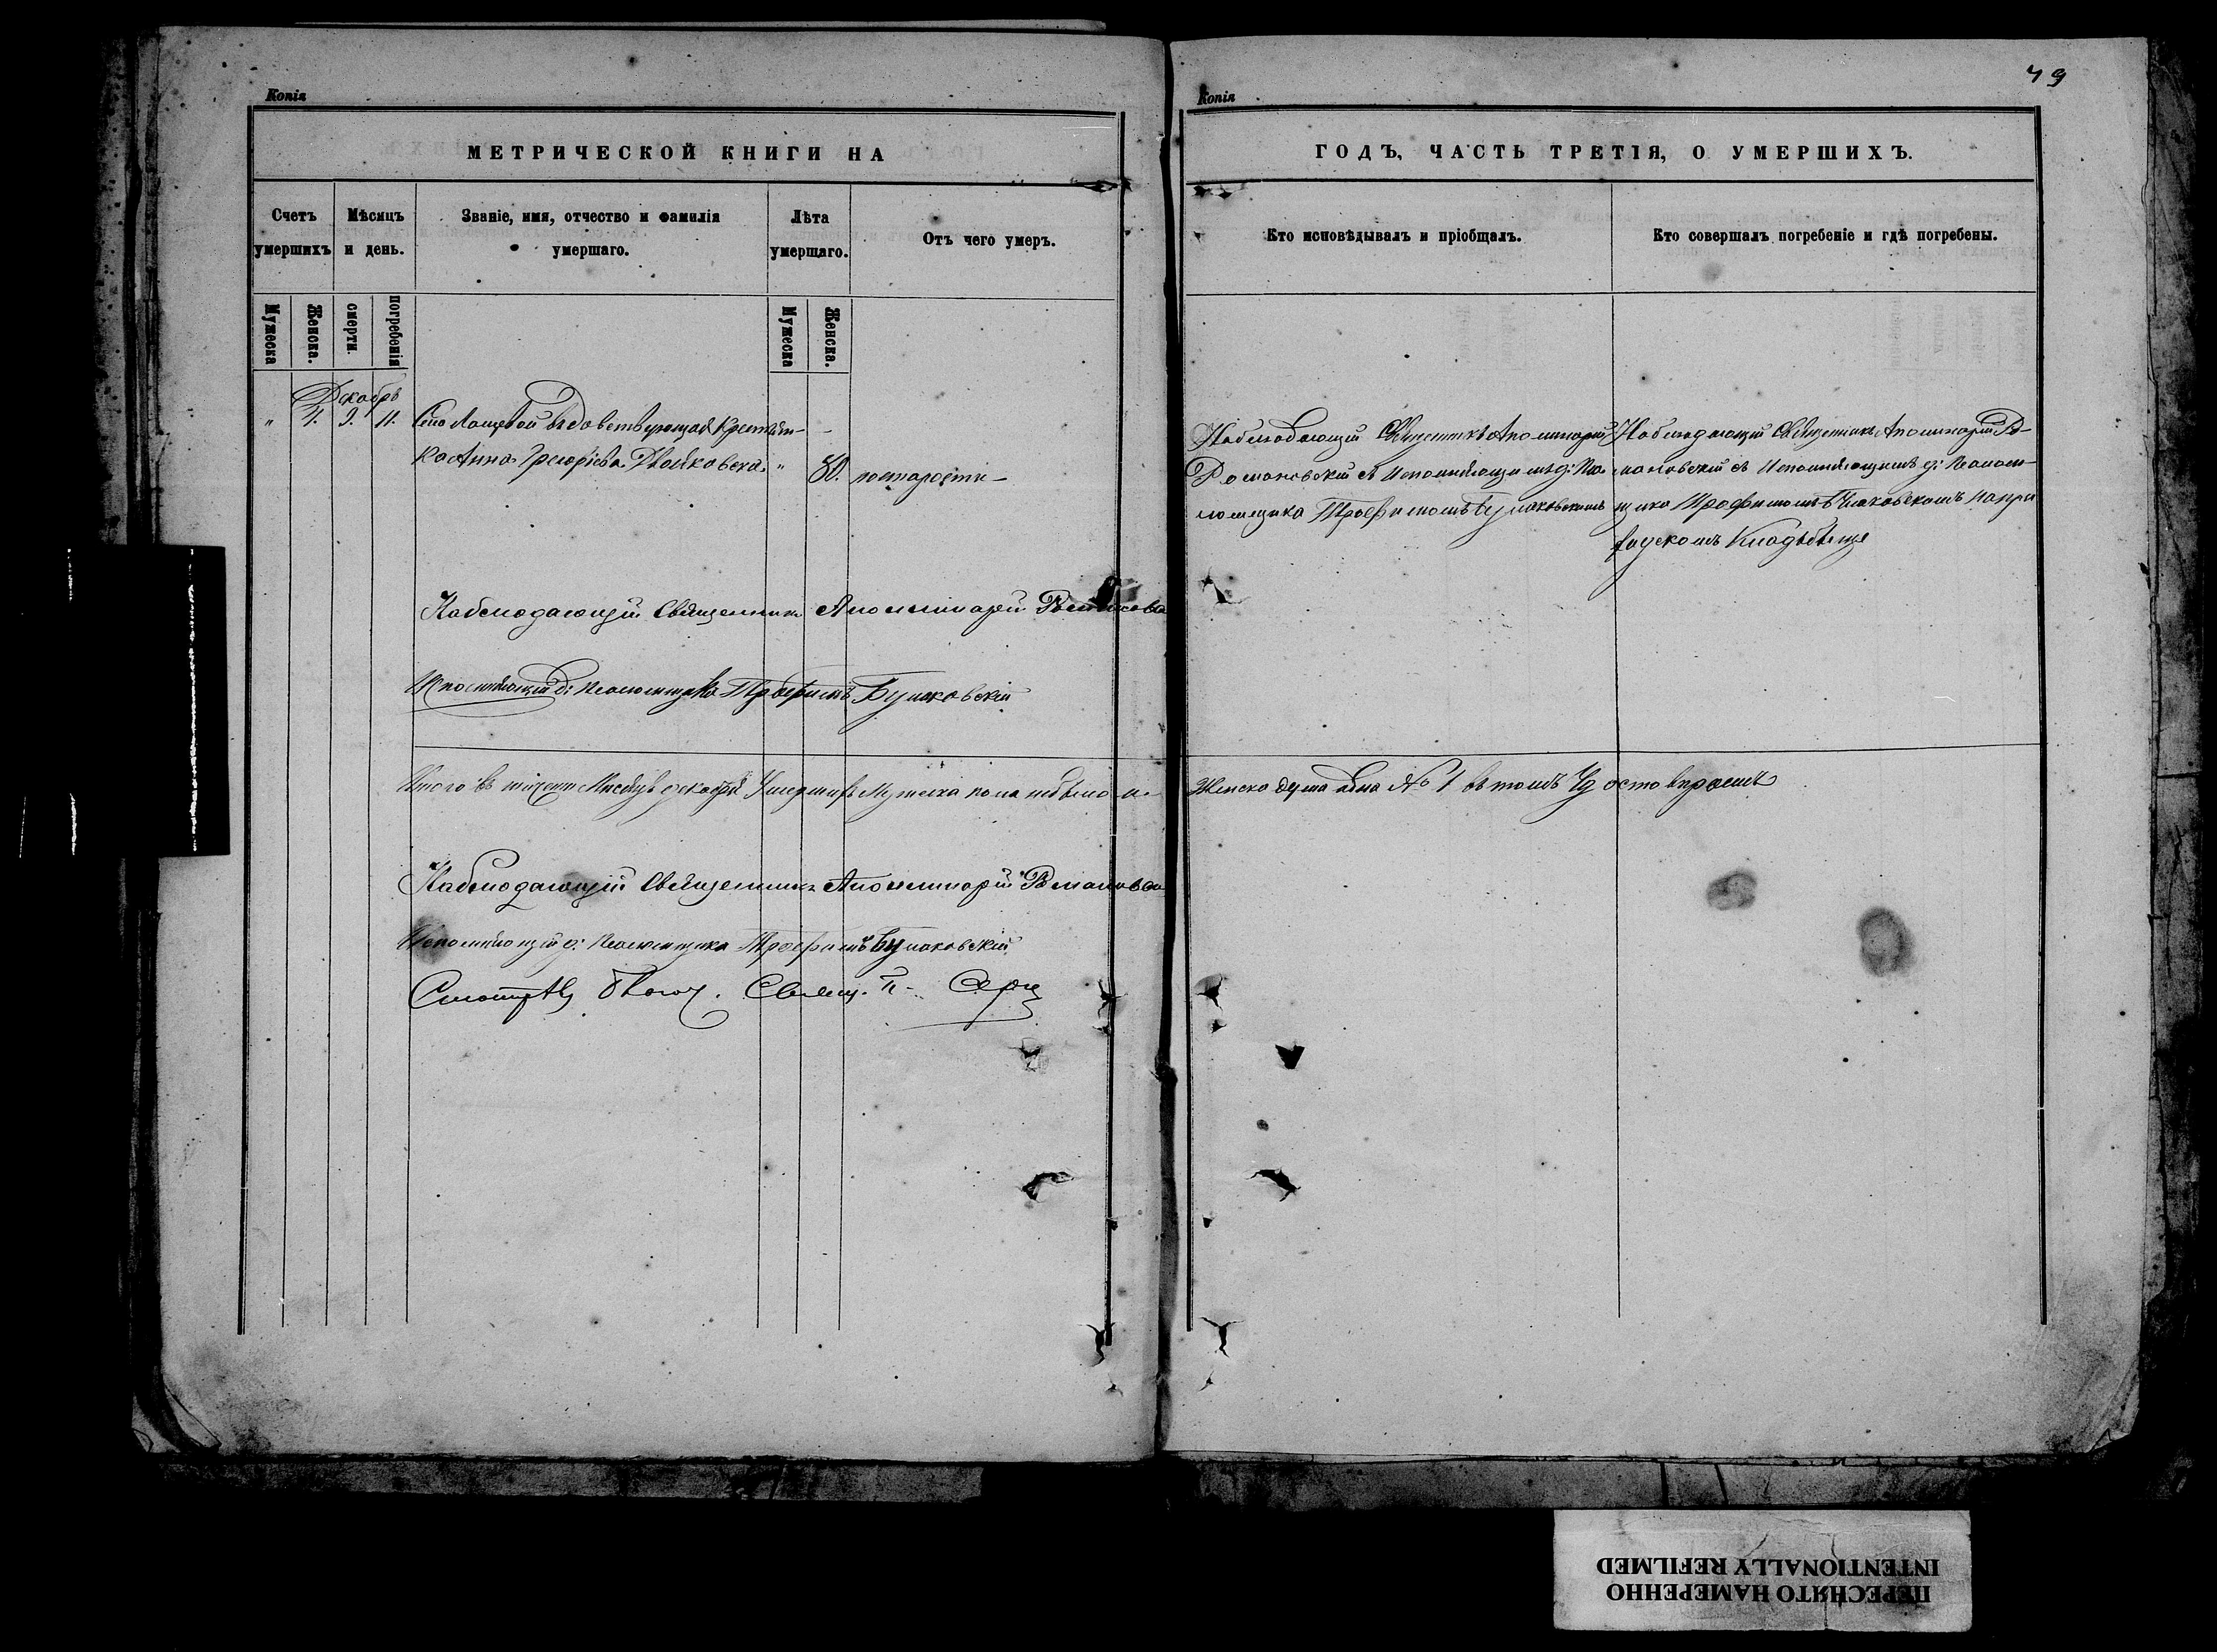 Копія
МЕТРИЧЕСКОЙ КНИГИ НА
Счетъ умершихъ
Мѣсяцъ и день.
Званіе, имя, отчество и фамилія умершаго.
Лѣта умершаго.
Отъ чего умеръ.
Мужеска
Женска.
смерти.
погребенія
Мужеска
Женска.
Декабрь
" 4. 9. 11. Села вдовствующая Крестьян-
ка Анна Григоріева Двойковска. " 80. по старости
Наблюдающій Священникъ Аполинарій
д: Псаломщика Трофимъ Булаковскій
Итого въ Мѣсяцѣ декабрѣ Умершихъ Мужеска пола небыло а
Наблюдающій Священникъ Аполинарій
Исполняющій д: Псаломщика Трофимъ Булаковскій
Смотрѣлъ Благоч. Священ. П.
Копія
49
ГОДЪ, ЧАСТЬ ТРЕТІЯ, О УМЕРШИХЪ.
Кто исповѣдывалъ и пріобщалъ.
Кто совершалъ погребеніе и гдѣ погребены.
Наблюдающій Священникъ Аполинарій
Романовскій съ Исполняющимъ д: Пса-
ломщика Трофимомъ Булаковскимъ
Наблюдающій Священникъ Аполинарій Ро-
мановскій съ Исполняющимъ д: Псалом-
щика Трофимомъ Булаковскимъ на при
ходскомъ Кладбѣще
Женска одна № 1 въ томъ
ПЕРЕСНЯТО НАМЕРЕННО
INTENTIONALLY REFILMED